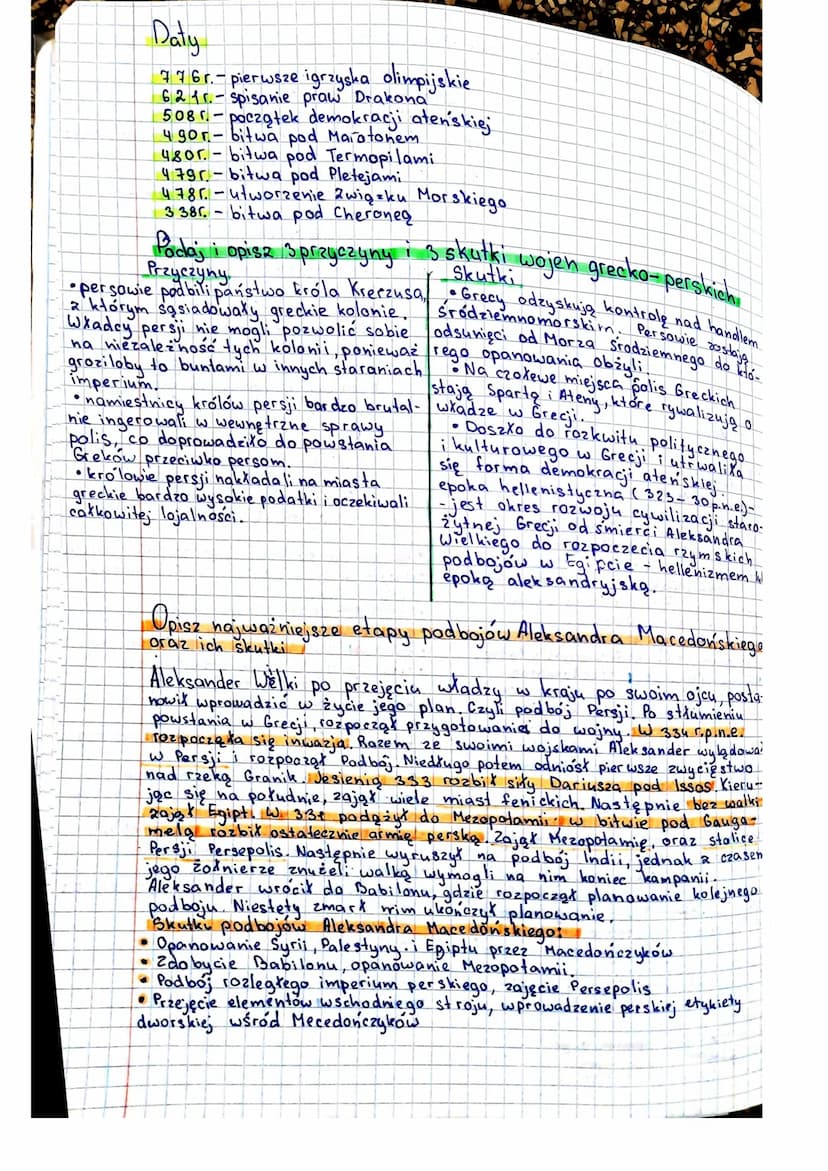 Daty
776r.- pierwsze igrzyska olimpijskie
621r.- spisanie praw Drakona
508r.- początek demokracji ateńskiej
490r.- bitwa pod Maratonem
480r.- bitwa pod Termopilami
479r.- bitwa pod Pletejami
478r.- utworzenie Związku Morskiego
338r. - bitwa pod Cheroneą
Podaj i opisz 3 przyczyny i 3 skutki wojen grecko-perskich
Przyczyny
• persowie podbili państwo króla Krezusa,
z którym sąsiadowały greckie kolonie.
Władcy persji nie mogli pozwolić sobie
na niezależność tych kolonii, ponieważ
groziłoby to buntami w innych staraniach
imperium.
• namiestnicy królów persji bardzo brutal-
nie ingerowali w wewnętrzne sprawy
polis, co doprowadziło do powstania
Greków przeciwko persom.
• królowie persji nakładali na miasta
greckie bardzo wysokie podatki i oczekiwali
całkowitej lojalności.
Skutki
• Grecy odzyskują kontrolę nad handlem
śródziemnomorskim. Persowie zostają
odsunięci od Morza Śródziemnego do któ-
rego opanowania dążyli.
• Na czołewe miejsca polis Greckich
stają Spartą i Ateny, które rywalizują o
władze w Grecji.
• Doszło do rozkwitu politycznego
i kulturowego w Grecji i utrwaliła
się forma demokracji ateńskiej.
epoka hellenistyczna (323-30 p.n.e.)-
- jest okres rozwoju cywilizacji staro-
żytnej Grecji od śmierci Aleksandra
Wielkiego do rozpoczecia rzymskich
podbojów w Egipcie - hellenizmem
epoką aleksandryjską.
Opisz najważniejsze etapy podbojów Aleksandra Macedońskiego
oraz ich skutki
Aleksander Wielki po przejęciu władzy w kraju po swoim ojcu, posta-
nowił wprowadzić w życie jego plan. Czyli podbój Persji. Po stłumieniu
powstania w Grecji, rozpoczął przygotowania do wojny. W 334 r.p.n.e.
rozpoczęła się inwazja. Razem ze swoimi wojskami Aleksander wylądował
w Persji i rozpoczął Podbój. Niedługo potem odniósł pierwsze zwycięstwo
nad rzeką Granik. Jesienią 333 rozbił siły Dariusza pod Issos. Kieru-
jąc się na południe, zajął wiele miast fenickich. Następnie bez walki
zajął Egipt. W 331 podążył do Mezopotamii. w bitwie pod Gauga-
melą rozbił ostatecznie armię perską. Zajął Mezopotamię, oraz stolice
Persji Persepolis. Następnie wyruszył na podbój Indii, jednak z czasem
jego żołnierze znużeli walką wymogli na nim koniec kampanii.
Aleksander wrócił do Babilonu, gdzie rozpoczął planowanie kolejnego
podboju. Niestety zmarł nim ukończył planowanie.
Skutki podbojów Aleksandra Macedońskiego:
• Opanowanie Syrii, Palestyny i Egiptu przez Macedończyków
• Zdobycie Babilonu, opanowanie Mezopotamii.
• Podbój rozległego imperium perskiego, zajęcie Persepolis
• Przejęcie elementów wschodniego stroju, wprowadzenie perskiej etykiety
dworskiej wśród Mecedończyków